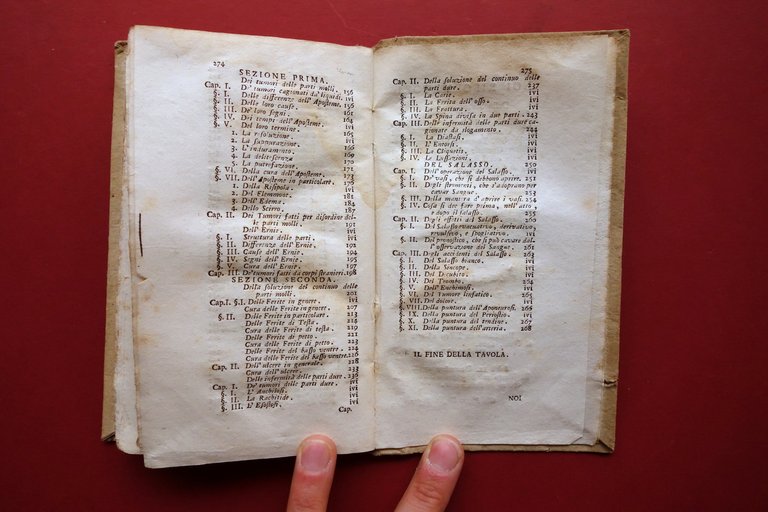 274
SEZIONE PRIMA.
Dei tumori delle parti molli.
Cap. I. De' tumori cagionati da' liquidi. 156
§. I. Delle differenze dell'Aposteme. ivi
§. II. Delle loro cause. 159
§. III. De' loro segni. 161
§. IV. Dei tempi dell'Aposteme. 164
§. V. Del loro termine. ivi
1. La risoluzione. 165
2. La suppurazione. 166
3. L'induramento. 169
4. La delitescenza 170
5. La putrefazione. 171
§. VI. Della cura dell'Aposteme. 173
§. VII. Dell'Aposteme in particolare.
1. Della Risipola. ivi
2. Del Flemmone. 181
3. Dell'Edema. 184
4. Dello Scirro. 187
Cap. II. Dei Tumori fatti per disordine del-
le parti molli. 191
Dell'Ernie. ivi
§. I. Struttura delle parti. ivi
§. II. Differenze dell'Ernie. 192
§. III. Cause dell'Ernie. 194
§. IV. Segni dell'Ernie. 195
§. V. Cura dell'Ernie. 197
Cap. III. De' tumori fatti da corpi stranieri. 198
SEZIONE SECONDA.
Della soluzione del continuo delle
parti molli. 201
Cap. I. §. I. Delle Ferite in genere. ivi
Cura delle Ferite in genere. 207
§. II. Delle Ferite in particolare. 213
Delle Ferite di Testa. 214
Cura delle Ferite di testa. 219
Delle Ferite di petto. 221
Cura delle Ferite di petto. 223
Delle Ferite del basso ventre. 224
Cura delle Ferite del basso ventre. 226
Cap. II. Dell'ulcere in generale. 228
Cura dell'ulcere. 233
Delle infermità delle parti dure. 236
Cap. I. De' tumori delle parti dure. ivi
§. I. L'Anchilosi. ivi
§. II. La Rachitide. ivi
§. III. L'Esostosi. ivi
Cap.
275
Cap. II. Della soluzione del continuo delle
parti dure. 237
§. I. La Carie. ivi
§. II. La Ferita dell'osso. ivi
§. III. La Frattura. ivi
§. IV. La Spina divisa in due parti. 243
Cap. III. Dell'infermità delle parti dure ca-
gionate da slogamento. 244
§. I. La Diastasi. ivi
§. II. L'Entorsi. ivi
§. III. La Cliquetis. ivi
§. IV. Le Lussazioni. ivi
DEL SALASSO. 250
Cap. I. Dell'operazione del Salasso. ivi
§. I. De' vasi, che si debbono aprire. 251
§. II. Degli stromenti, che s'adoprano per
cavar Sangue. 253
§. III. Della maniera d'aprire i vasi. 254
§. IV. Cosa si dee fare prima, nell'atto,
e dopo il salasso. 255
Cap. II. Degli effetti del Salasso. 260
§. I. Del Salasso evacuativo, derivativo,
revulsivo, e spogliativo. ivi
§. II. Del pronostico, che si può cavare dal-
l'osservazione del Sangue. 261
Cap. III. Degli accidenti del Salasso. 263
§. I. Del Salasso bianco. ivi
§. II. Della Sincope. ivi
§. III. Del Decubito. ivi
§. IV. Del Trombo. 264
§. V. Dell'Enchimosi. ivi
§. VI. Del Tumore linfatico. ivi
§. VII. Del dolore. ivi
§. VIII. Della puntura dell'Aponeurosi. 265
§. IX. Della puntura del Periostio. ivi
§. X. Della puntura del tendine. 267
§. XI. Della puntura dell'arteria. 268
IL FINE DELLA TAVOLA.
NOI